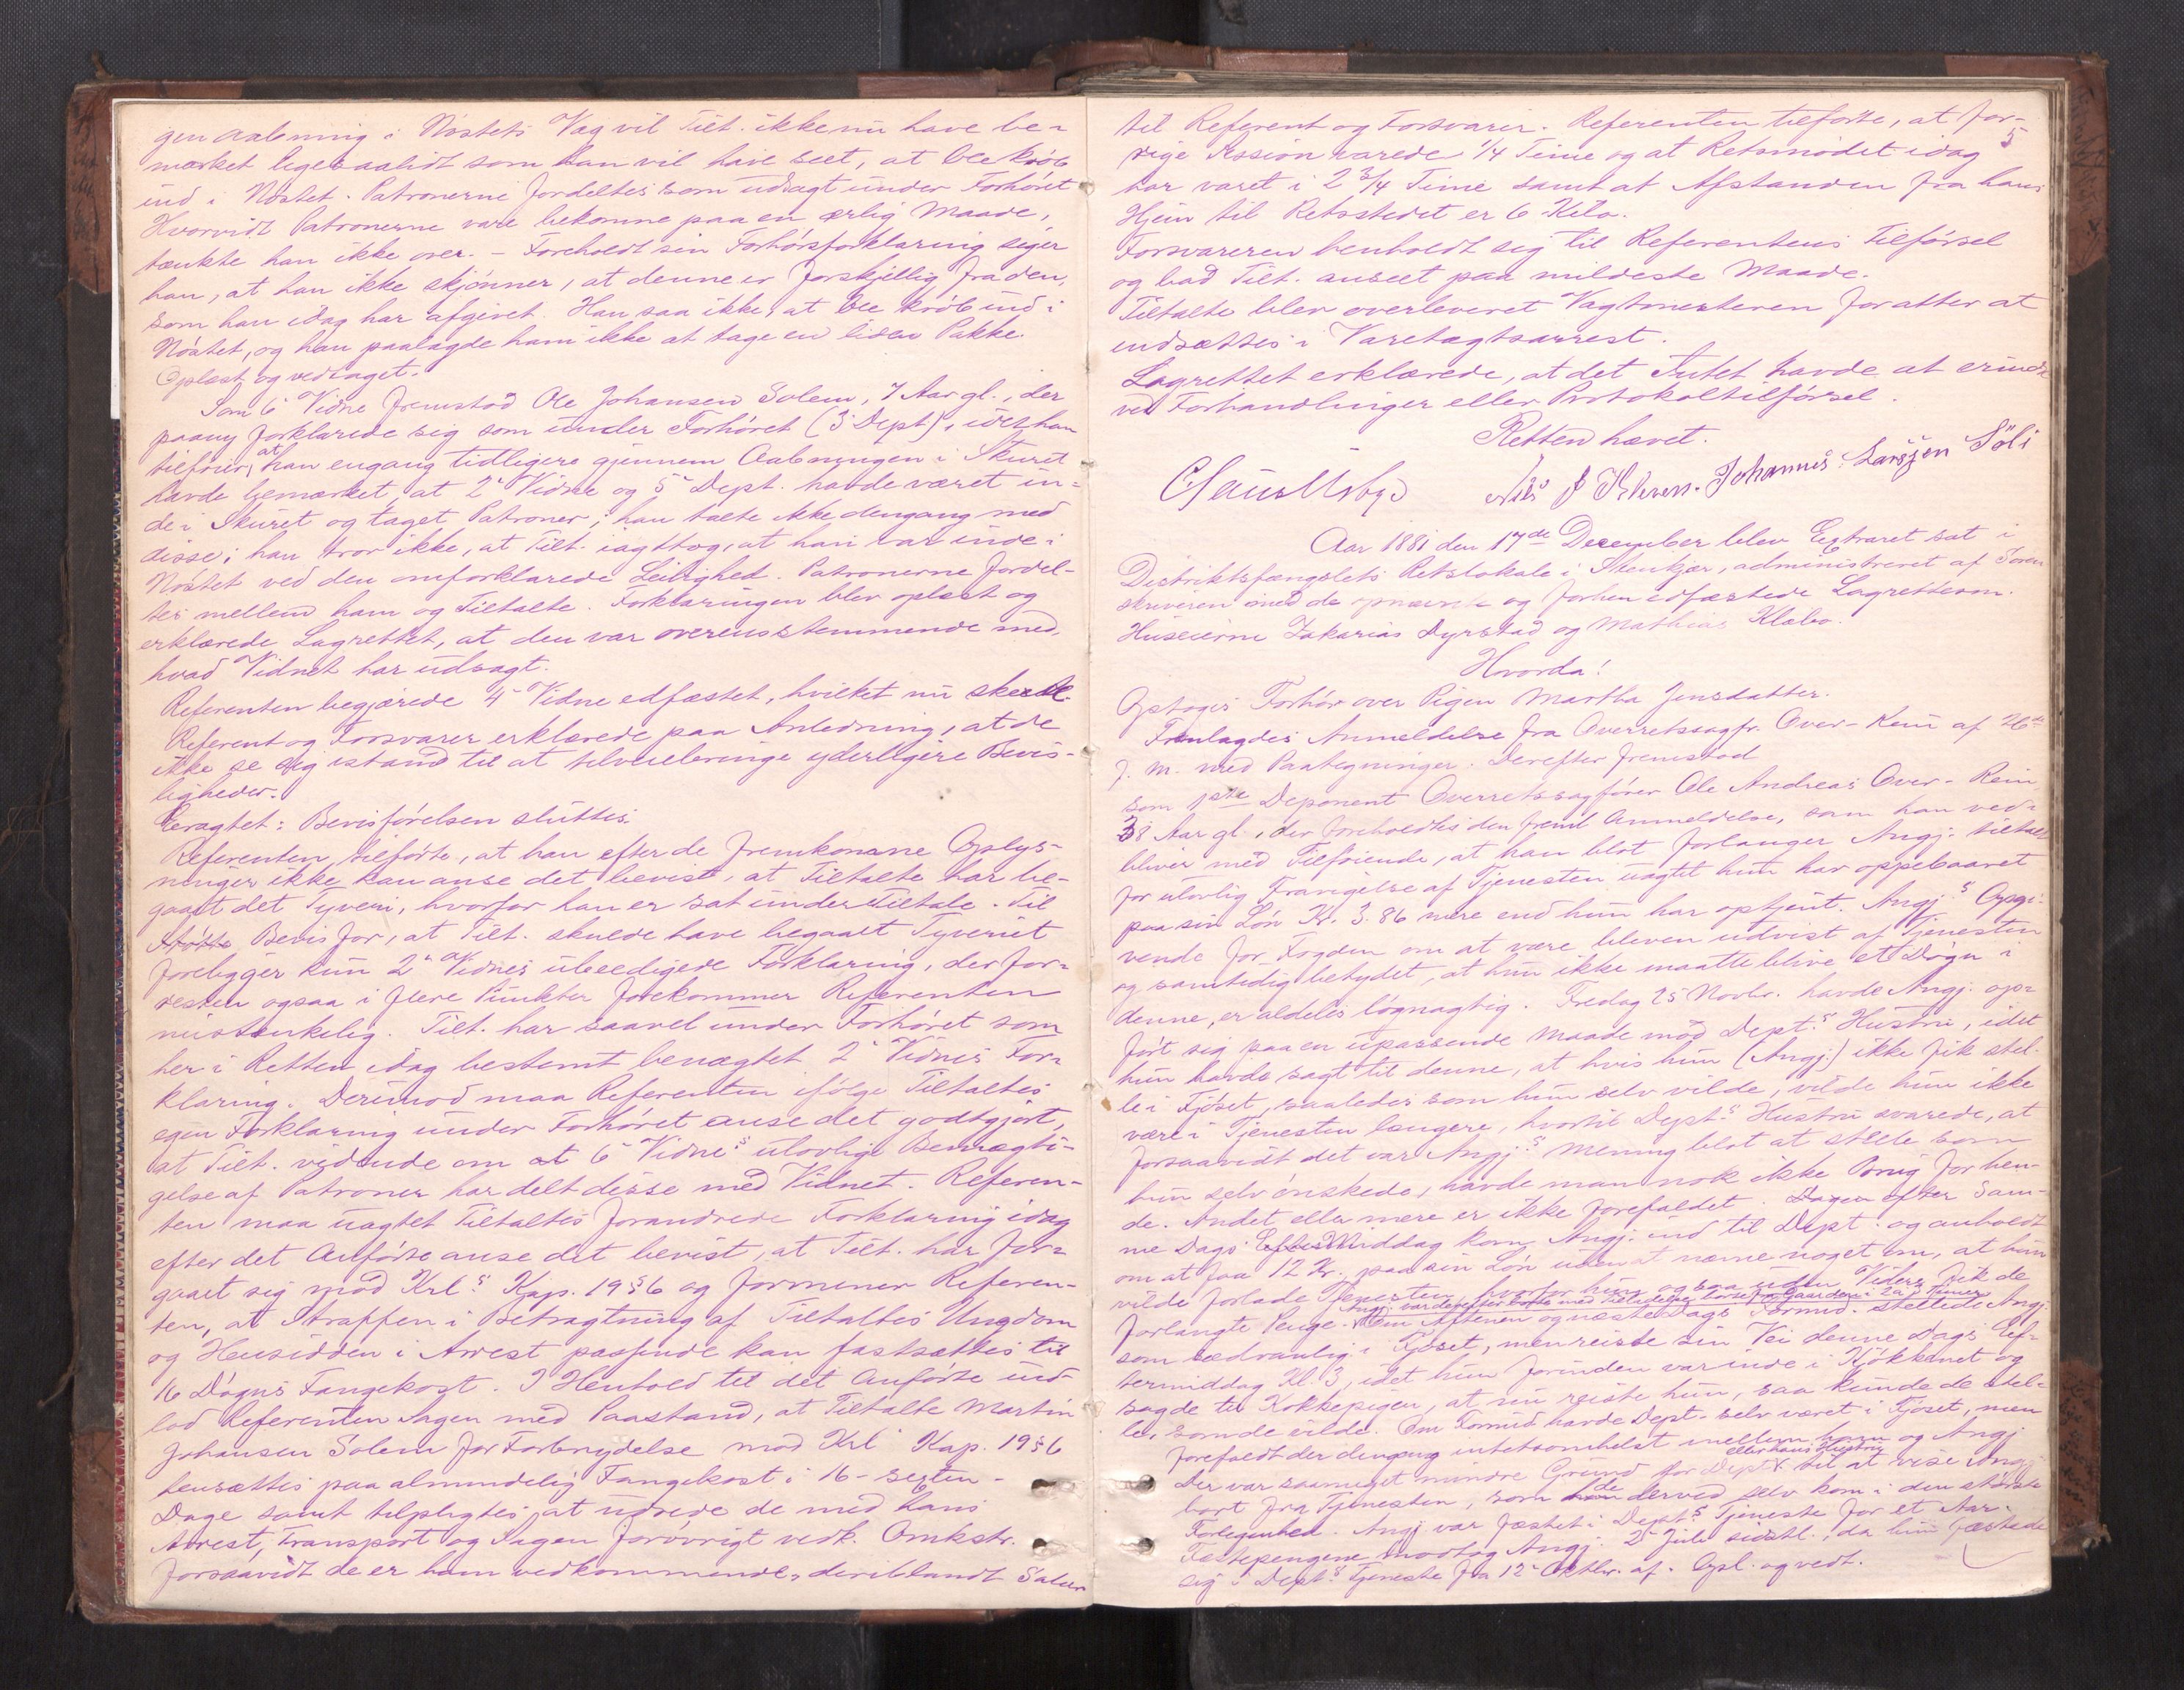 gen Aabning i Nøstets Væg vil Tilt. ikke nu have be-
mærket ligesaalidt som han vil have seet, at Ole krøb
ind i Nøstet. Patronerne fordeltes som udsagt under Forhøret
Hvorvidt Patronerne vare bekomne paa en ærlig Maade,
tænkte han ikke over. – Foreholdt sin Forhørsforklaring siger
han, at han ikke skjønner, at denne er forskjellig fra den,
som han idag har afgivet. Han saa ikke, at Ole krøb ind i
Nøstet, og han paalagde ham ikke at tage en liden Pakke.
Oplæst og vedtaget.
Som 6' Vidne fremstod Ole Johansen Solem, 7 Aar gl., der
paany forklarede sig som under Forhøret (3' Dept), idet han
tilføier, at han engang tidligere gjennem Aabningen i Skuret
havde bemærket, at 2' Vidne og 5' Dept. havde været in-
de i Skuret og taget Patroner; han talte ikke dengang med
disse; han tror ikke, at Tilt. iagttog, at han var inde i
Nøstet ved den omforklarede Leilighed. Patronerne fordel-
tes mellem ham og Tiltalte. Forklaringen blev oplæst og
erklærede Lagrettet, at den var overensstemmende med,
hvad Vidnet har udsagt.
Referenten begjærede 4' Vidne edfæstet, hvilket nu skede.
Referent og Forsvarer erklærede paa Anledning, at de
ikke se sig istand til at tilveiebringe yderligere Bevis-
ligheder.
Eragtet: Bevisførelsen sluttes.
Referenten tilførte, at han efter de fremkomne Oplys-
ninger ikke kan anse det bevist, at Tiltalte har be-
gaaet det Tyveri, hvorfor han er sat under Tiltale. Til
Støtte Bevis for, at Tilt. skulde have begaaet Tyveriet
foreligger kun 2' Vidnes ubeedigede Forklaring, der for-
resten ogsaa i flere Punkter forekommer Referenten
mistænkelig. Tilt. har saavel under Forhøret som
her i Retten idag bestemt benægtet 2' Vidnes For-
klaring. Derimod maa Referenten ifølge Tiltaltes
egen Forklaring under Forhøret anse det godtgjort,
at Tilt. vidende om at 6' Vidnes ulovlige Bemægti-
gelse af Patroner har delt disse med Vidnet. Referen-
ten maa uagtet Tiltaltes forandrede Forklaring idag
efter det Anførte anse det bevist, at Tilt. har for-
gaaet sig mod Krls Kap. 19 § 6 og formener Referen-
ten, at Straffen i Betragtning af Tiltaltes Ungdom
og Hensidden i Arrest passende kan fastsættes til
16 Døgns Fangekost. I Henhold til det Anførte ind-
lod Referenten Sagen med Paastand, at Tiltalte Martin
Johansen Solem for Forbrydelse mod Krl Kap. 19 § 6
hensættes paa almindelig Fangekost i 16 – sexten –
Dage samt tilpligtes at udrede de med hans
Arrest, Transport og Sagen forøvrigt vedk. Omkstr.
forsaavidt de er ham vedkommende, deriblandt Salær
5
til Referent og Forsvarer. Referenten tilførte, at for-
rige Session varede 1/4 Time og at Retsmødet idag
har varet i 2 3/4 Time samt at Afstanden fra hans
Hjem til Retsstedet er 6 Kilo.
Forsvareren henholdt sig til Referentens Tilførsel
og bad Tilt. anseet paa mildeste Maade.
Tiltalte blev overleveret Vagtmesteren for atter at
indsættes i Varetægtsarrest.
Lagrettet erklærede, at det Intet havde at erindre
ved Forhandlinger eller Protokoltilførsel.
Retten hævet.
Nils J Johannes Larssen Söli
Aar 1881 den 17de December blev Extraret sat i
Distriktsfængslets Retslokale i Stenkjær, administreret af Soren-
skriveren med de opnævnte og forhen edfæstede Lagrettesm.
Huseierne Zakarias Dyrstad og Mathias Klæbo.
Hvorda!
Optoges Forhør over Pigen Martha Jensdatter.
Fremlagdes Anmeldelse fra Overretssagfr. Over-Rein af 26de
f. M. med Paategninger. Derefter fremstod
som 1ste Deponent Overretssagfører Ole Andreas Over-Rein
38 Aar gl., der foreholdtes den freml Anmeldelse, som han ved-
bliver med Tilføiende, at han blot forlanger Angj. tiltalt
for ulovlig Fravigelse af Tjenesten uagtet hun har oppebaaret
paa sin Løn Kr. 3.86 mere end hun har optjent. Angj.s Opgi-
vende for Fogden om at være bleven udvist af Tjenesten
og samtidig betydet, at hun ikke maatte blive et Døgn i
denne, er aldeles løgnagtig. Fredag 25 Novbr. havde Angj. op-
ført sig paa en upassende Maade mod Dept.s Hustru, idet
hun havde sagt til denne, at hvis hun (Angj) ikke fik stel-
le i Fjøset, saaledes som hun selv vilde, vilde hun ikke
være i Tjenesten længere, hvortil Dept.s Hustru svarede, at
forsaavidt det var Angj.s Mening blot at stelle som
hun selv ønskede, havde man nok ikke Brug for hen-
de. Andet eller mere er ikke forefaldet. Dagen efter Sam-
me Dags Eftermiddag kom Angj. ind til Dept. og anholdt
om at faa 12 Kr. paa sin Løn uden at nævne noget om, at hun
vilde forlade Tjenesten, hvorfor hun ogsaa uden Videre fik de
forlangte Penge. Om Aftenen og næste Dags Formid. stellede Angj.
som sædvanlig i Fjøset, men reiste sin Vei denne Dags Ef-
termiddag Kl. 3, idet hun forinden var inde i Kjøkkenet og
sagde til Kokkepigen, at nu reiste hun, saa kunde de stel-
le, som de vilde. Om Formid havde Dept. selv været i Fjøset, men
forefaldt der dengang intetsomhelst mellem ham og Angj
Der var saameget mindre Grund for Dept eller hans Hustru til at vise Angj
bort fra Tjenesten, som de derved selv kom i den største
Forlegenhed. Angj var fæstet i Dept.s Tjeneste for et Aar.
Fæstepengene modtog Angj. 2' Juli sidstl., da hun fæstede
sig i Dept.s Tjeneste fra 12' Oktbr. af. Opl. og vedt.